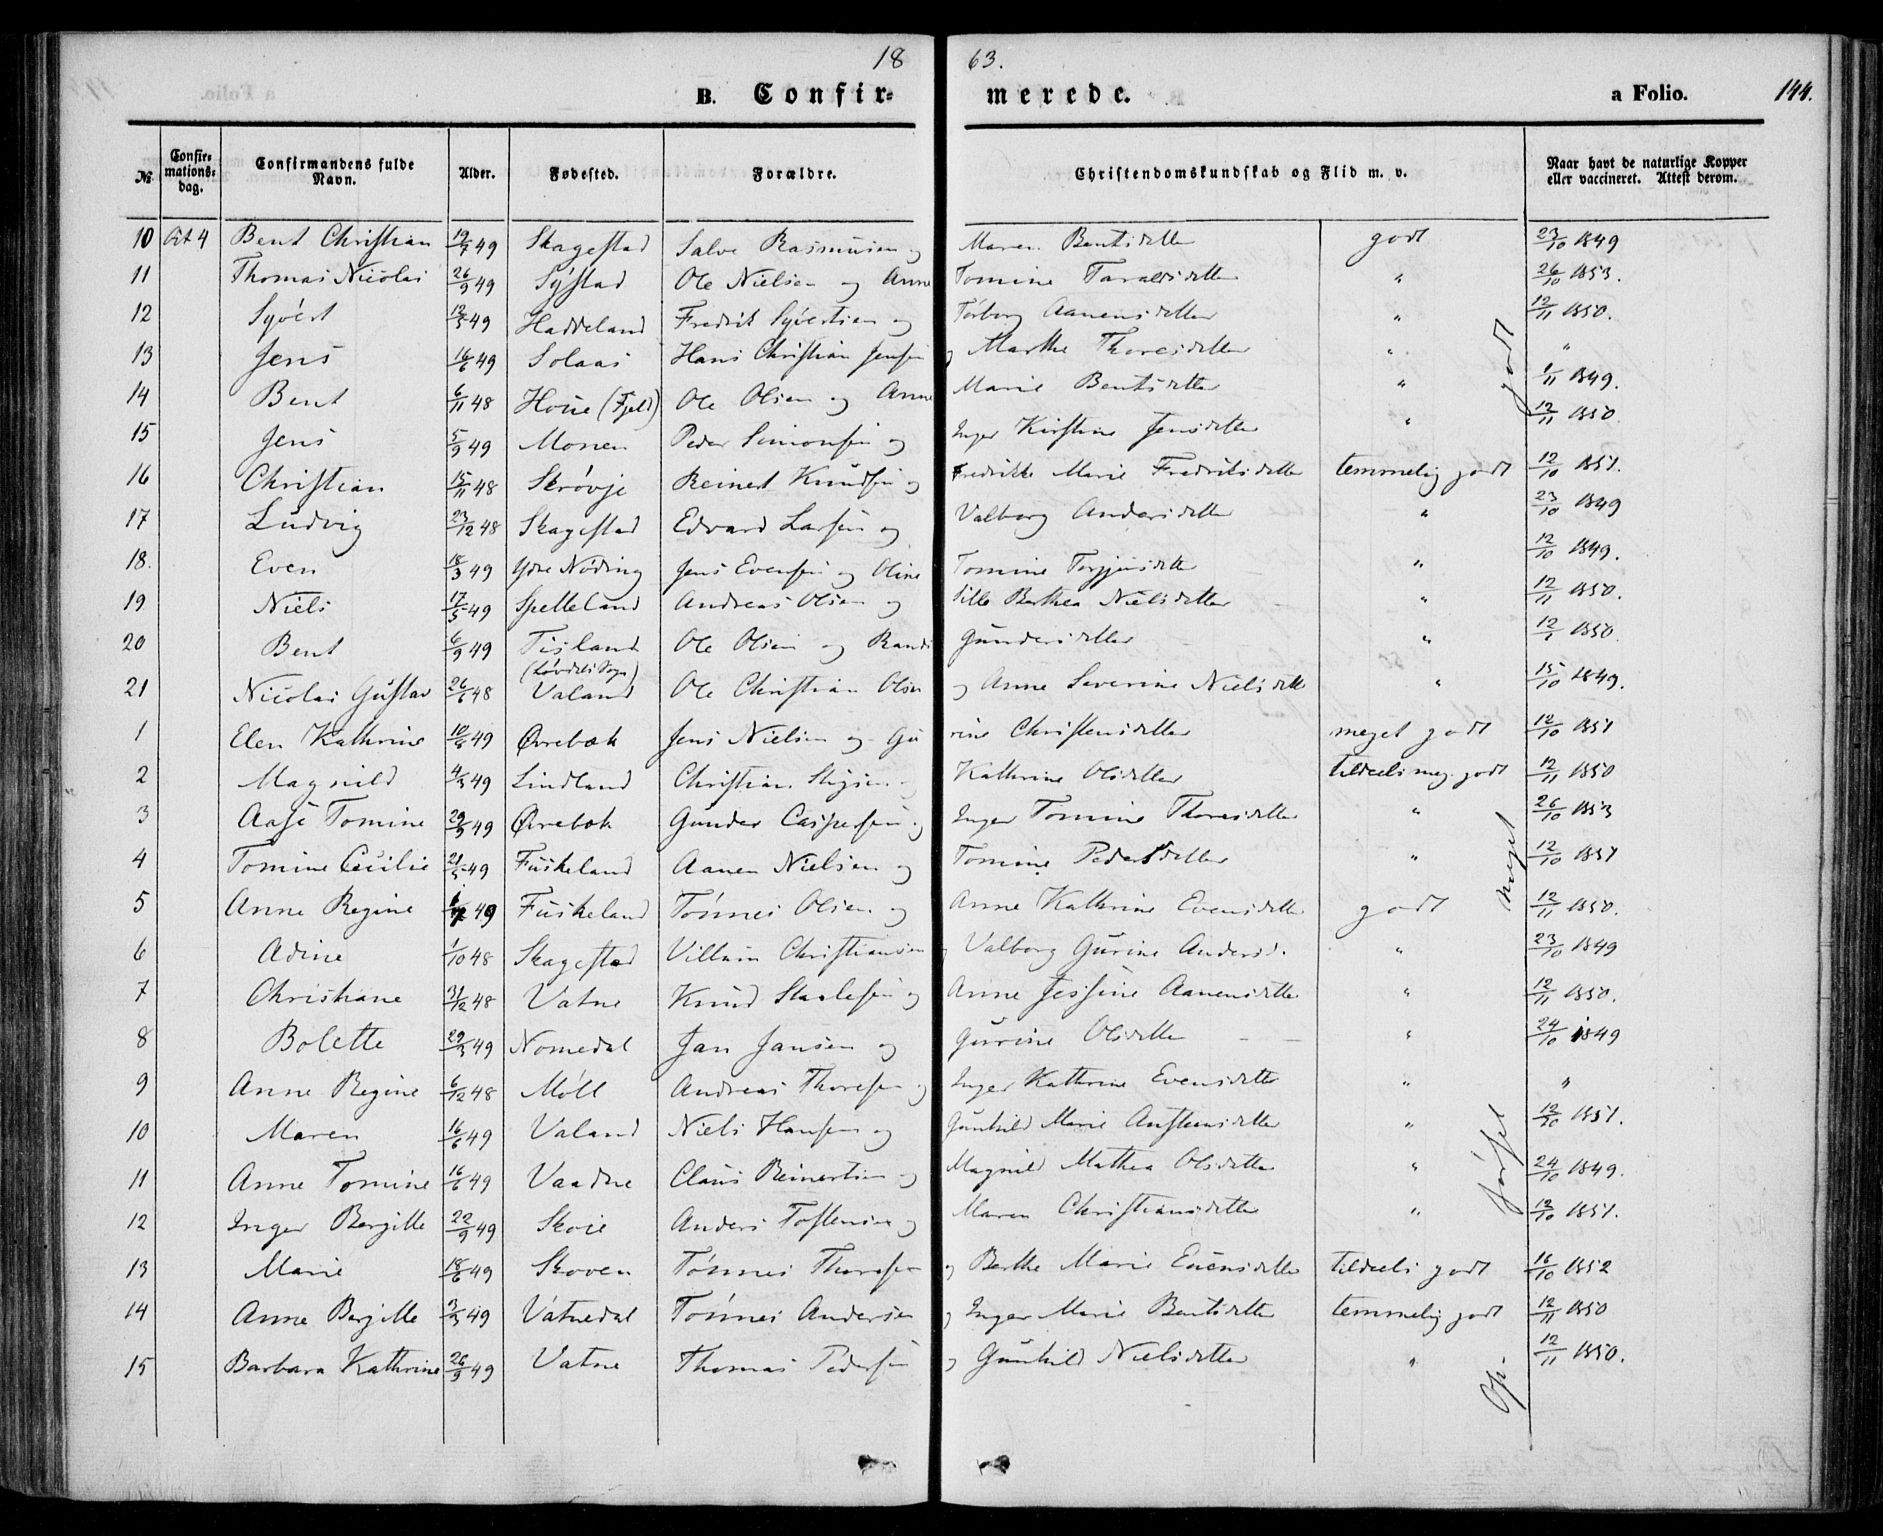 18 63.
B. Confir= merede. a Folio. 144.
№ Confir=mations=dag. Confirmandens fulde Navn. Alder. Fødested. Forældre. Christendomskundskab og Flid m. v. Naar havt de naturlige Kopper eller vaccineret. Attest derom.
10 Oct 4 Bent Christian 19/7 49 Skagestad Salve Rasmusen og Maren Bentsdatter godt 23/10 1849
11 Thomas Nicolai 26/9 49 Systad Ole Nielsen og Anne Tomine Taraldsdatter " 26/10 1853.
12 Syvert 12/5 49 Haddeland Fredrik Syvertsen og Torborg Aanensdatter " 12/11 1850.
13 Jens 16/6 49 Solaas Hans Christian Jensen og Marthe Thoresdatter " "
14 Bent 6/11 48 Houe (Fjeld) Ole Olsen og Anne Marie Bentsdatter " 1/11 1849.
15 Jens 5/9 49 Monen Peder Simonsen og Inger Kirstine Jensdatter " 12/11 1850
16 Christian 15/11 48 Skrøvje Reinert Knudsen og Fredrikke Marie Fredriksdatter temmelig godt 12/10 1851.
17 Ludvig 23/12 48 Skagestad Edvard Larsen og Valborg Andersdatter " 23/10 1849
18. Even 18/3 49 Ydre Nøding Jens Evensen og Oline Tomine Torjusdatter " 12/10 1849.
19 Niels 17/5 49 Spetteland Andreas Olsen og Sille Berthea Nielsdatter " 12/11 1850.
20 Bent 6/9 49 Tisland Ole Olsen og Randi Gundersdatter " 12/1 1850.
(Løvdals Sogn)
21 Nicolai Gustav 26/6 48 Valand Ole Christian Olsen og Anne Severine Nielsdatt " 15/10 1849.
1 Elen Kathrine 10/4 49 Øvrebøk Jens Nielsen og Gurine Christensdatter meget godt 12/10 1851
2 Magnild 4/3 49 Lindland Christian Stigsen og Kathrine Olsdatter tildeels meg. godt 12/11 1850
3 Aase Tomine 29/5 49 Øvrebøk Gunder Caspersen og Inger Tomine Thoresdatter " 26/10 1853
4 Tomine Cecilie 21/5 49 Fuskeland Aanen Nielsen og Tomine Pedersdatter " 12/10 1851
5 Anne Regine 49 Fuskeland Tønnes Olsen og Anne Kathrine Evensdatter godt 12/11 1850.
6 Adine 1/10 48 Skagestad Villum Christiansen og Valborg Gurine Andersd. " 23/10 1849
7 Christiane 31/12 48 Vatne Knud Staalesen og Anne Jessine Aanensdatter " 12/11 1850.
8 Bolette 29/3 49 Nomedal Jan Jansen og Gurine Olsdatter " 24/10 1849
9 Anne Regine 6/12 48 Møll Andreas Thoresen og Inger Kathrine Evensdatter " "
10 Maren 16/6 49 Valand Niels Hansen og Gunhild Marie Austensdatter " 12/10 1851.
11 Anne Tomine 16/6 49 Vaadne Claus Reinertsen og Magnild Mathea Olsdatter " 24/10 1849.
12 Inger Bergitte 22/9 49 Skoie Anders Tostensen og Maren Christiansdatter " 12/10 1851.
13 Marie 18/6 49 Skoven Tønnes Thoresen og Berthe Marie Evensdatter tildeels godt 16/10 1852
14 Anne Bergitte 3/3 49 Vatnedal Tønnes Andersen og Inger Marie Bentsdatter temmelig godt 12/11 1850
15 Barbara Kathrine 26/9 49 Vatne Thomas Pedersen og Gunhild Nielsdatter " 12/11 1850.
Op. førsel meget godt